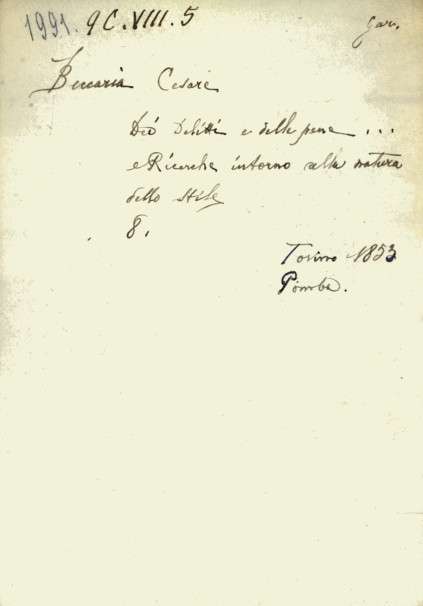 1991. 9C.VIII.5
Gar.
Beccaria Cesare
Dei Delitti e delle pene ...
e Ricerche intorno alla natura
dello stile
8.
Torino 1853
Pomba.